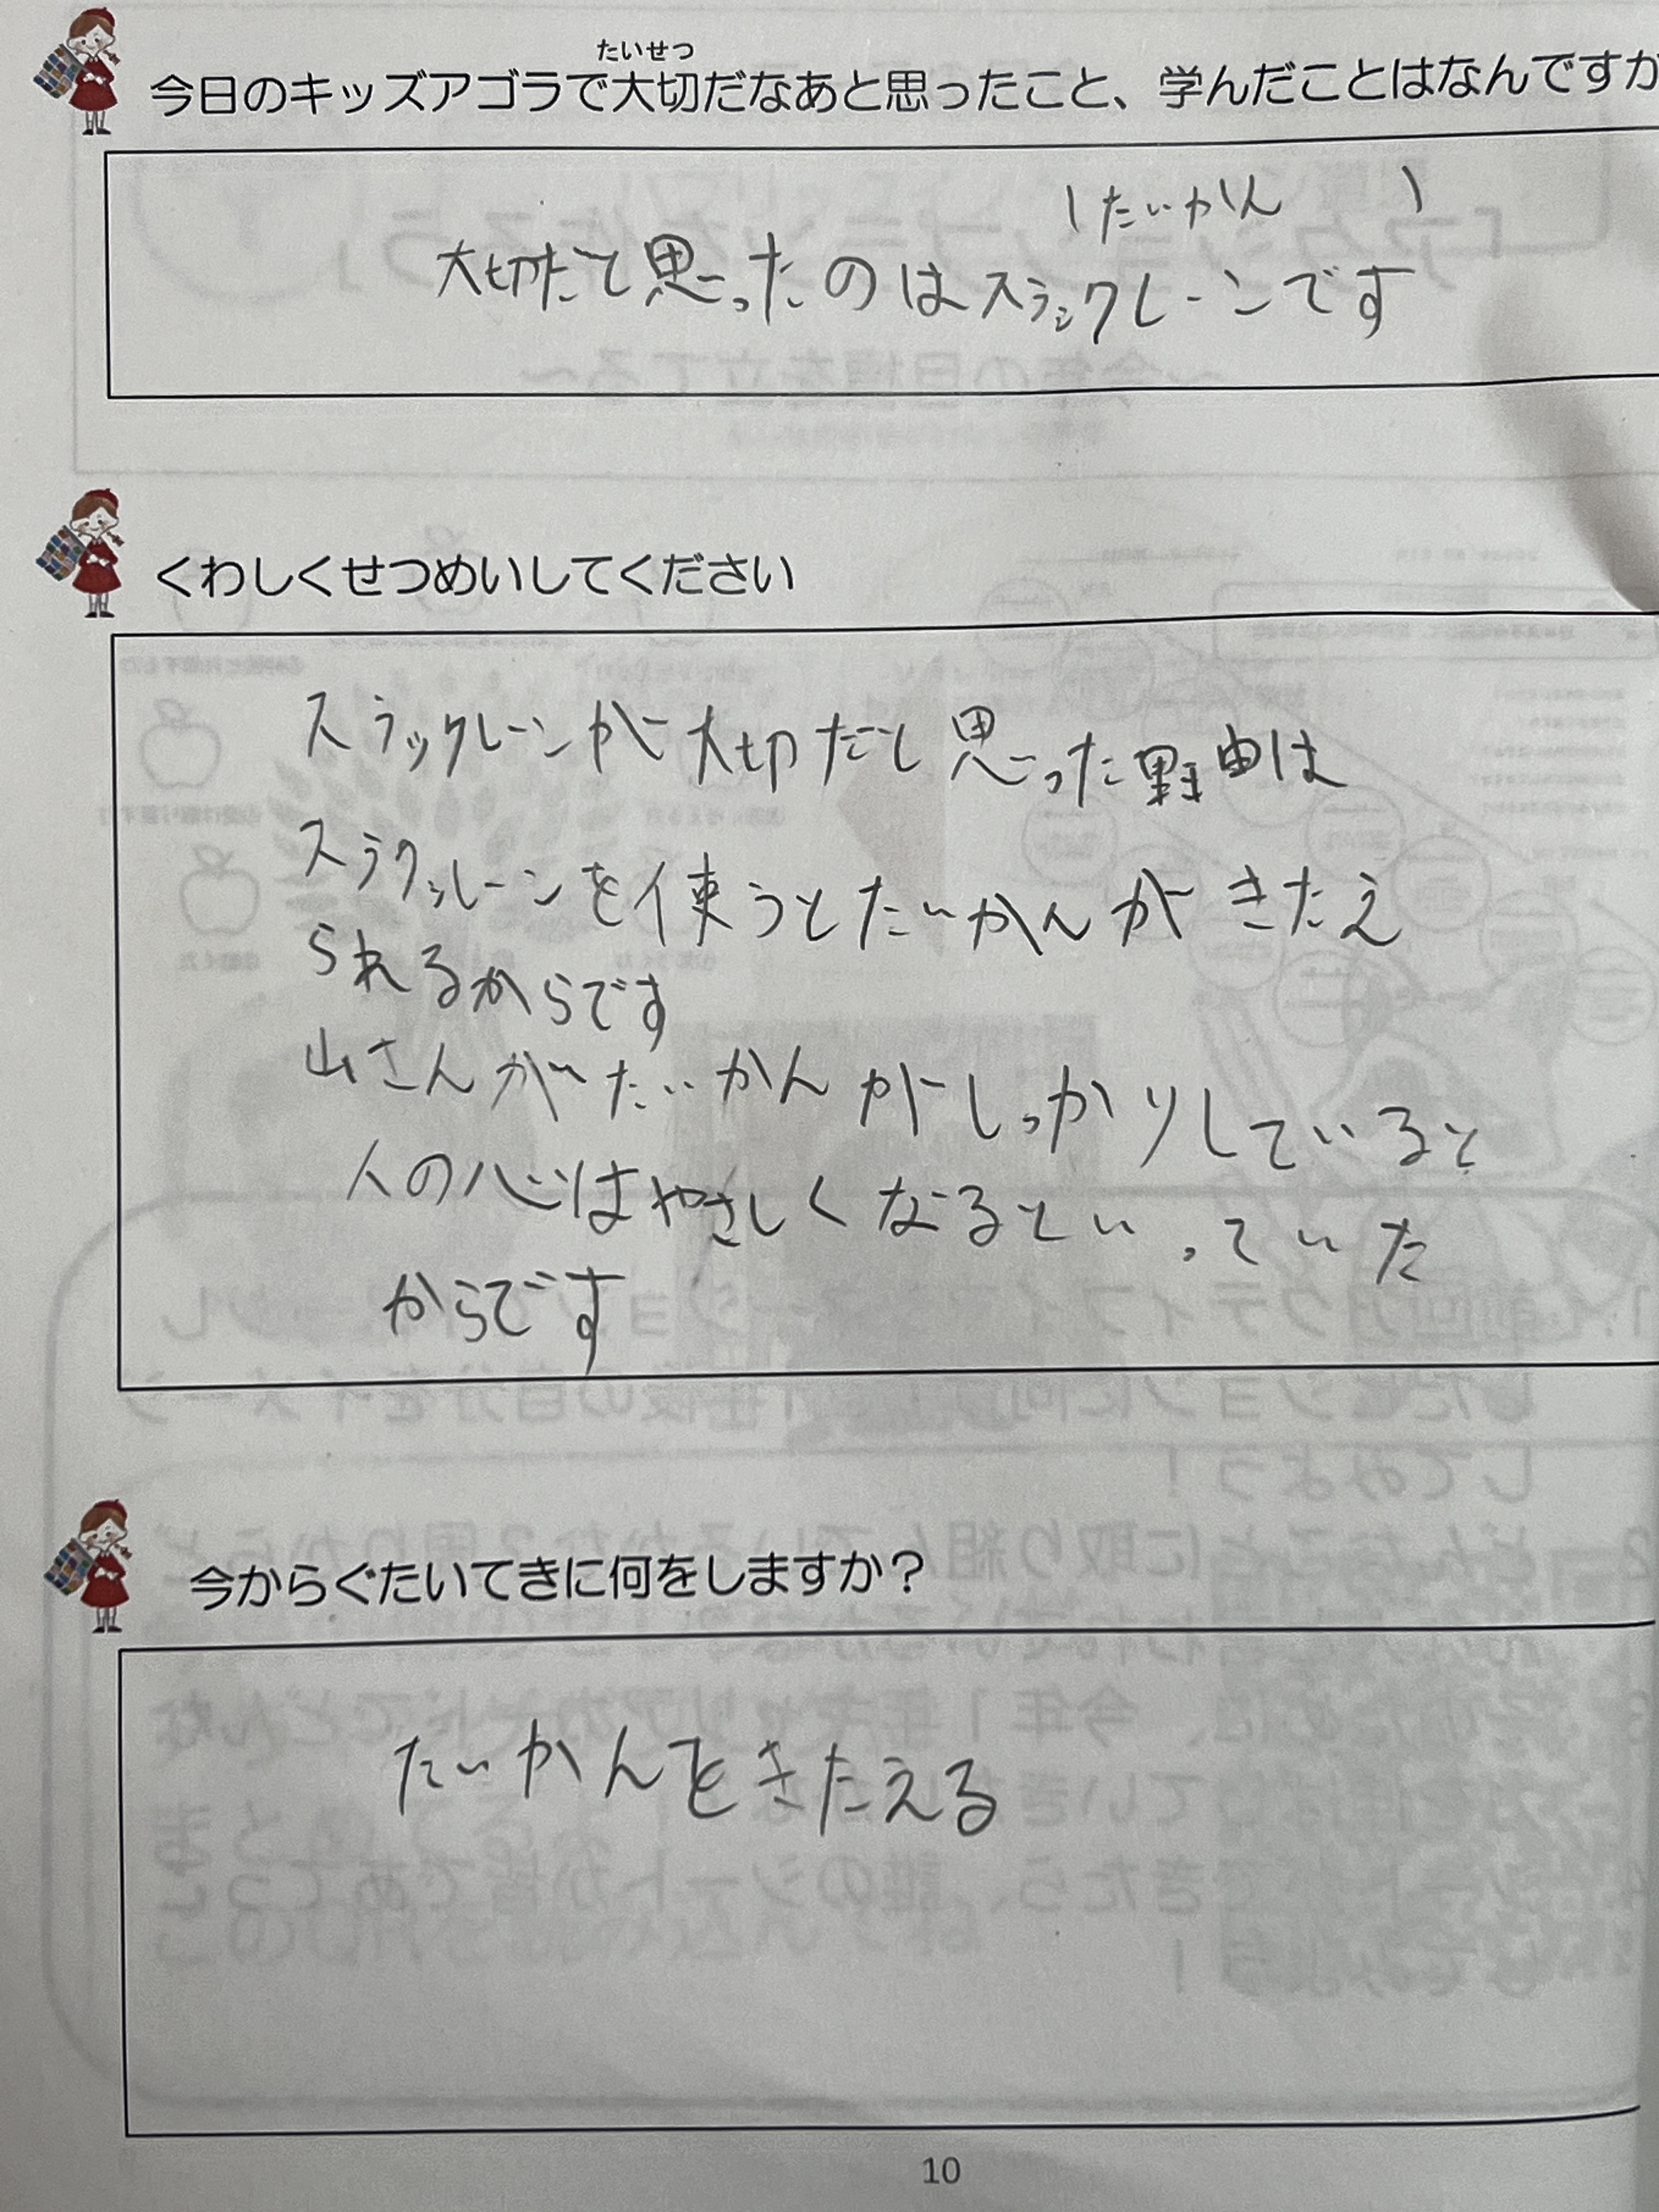 たいせつ
今日のキッズアゴラで大切だなあと思ったこと、学んだことはなんですか
(たいかん )
大切だと思ったのはスラックレーンです
くわしくせつめいしてください
スラックレーンが大切だと思った理由は
スラックレーンを使うとたいかんがきたえ
られるからです
山さんがたいかんがしっかりしていると
人の心はやさしくなるといっていた
からです
今からぐたいてきに何をしますか?
たいかんをきたえる
10